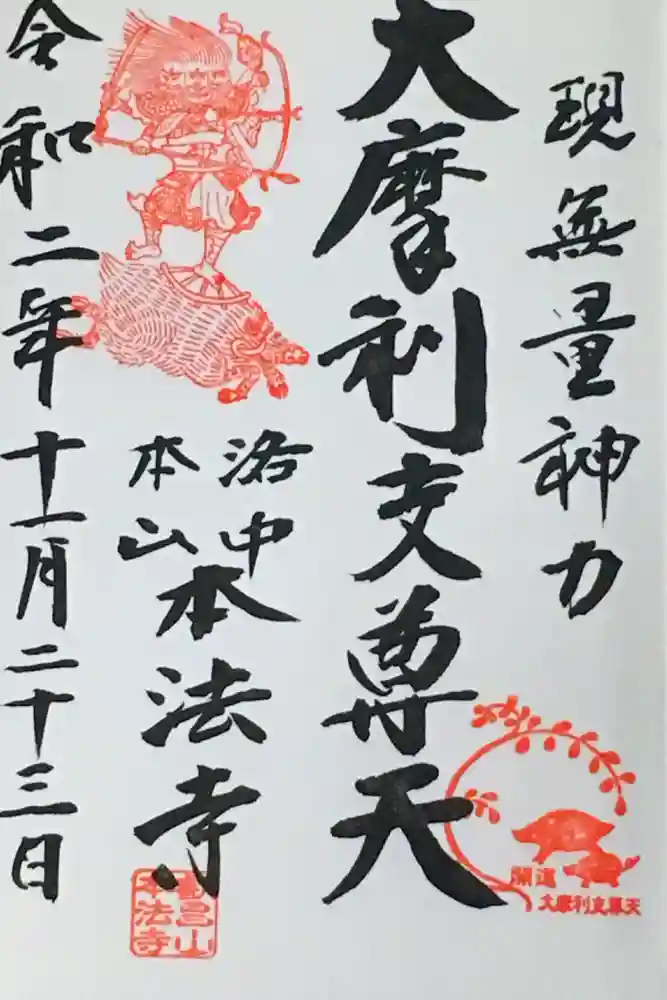 現無量神力
大摩利支尊天
開運
大摩利支尊天
洛中
本山
本法寺
叡昌山
本法寺
令和二年十一月二十三日